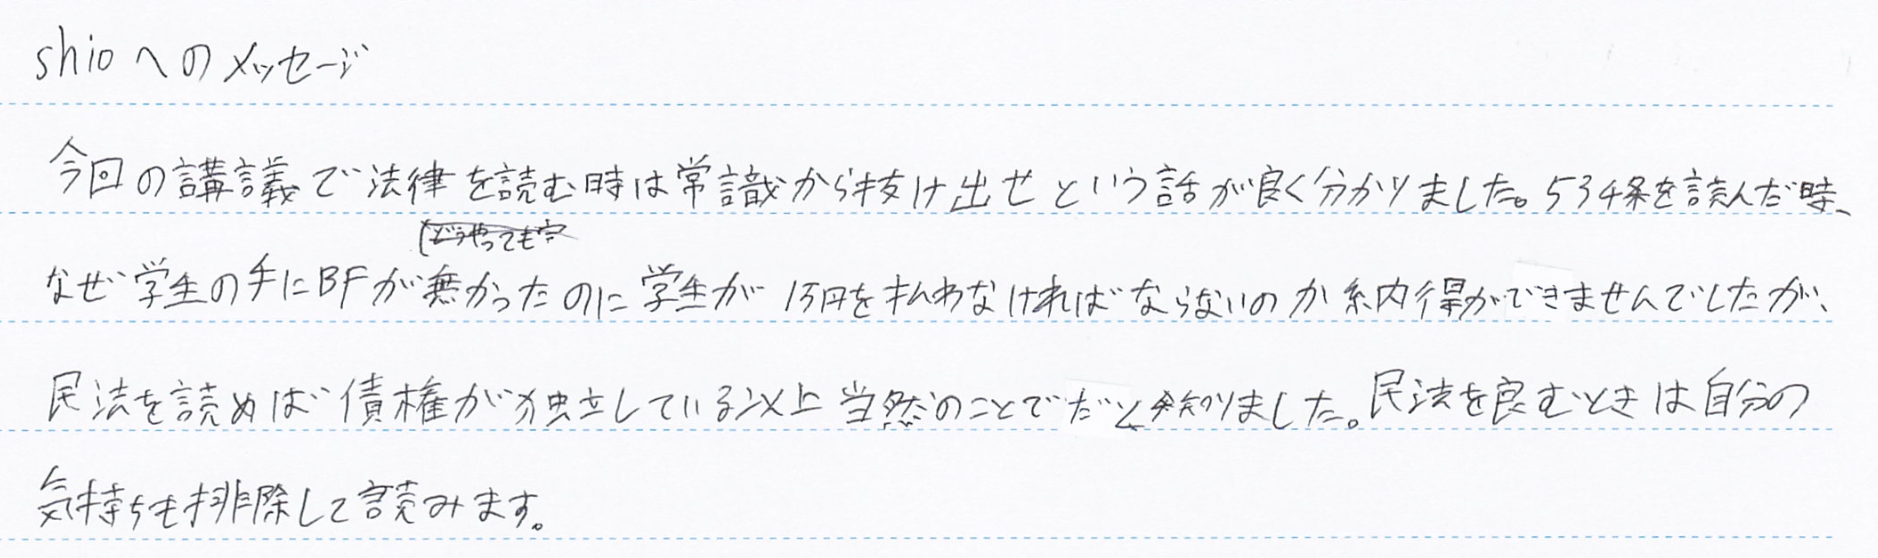 shioへのメッセージ
今回の講義で法律を読む時は常識から抜け出せという話が良く分かりました。534条を読んだ時、
なぜ学生の手にBFが無かったのに学生が1万円を払わなければならないのか納得ができませんでしたが、
民法を読めば債権が独立している以上当然のことでだと知りました。民法を良むときは自分の
気持ちも排除して読みます。